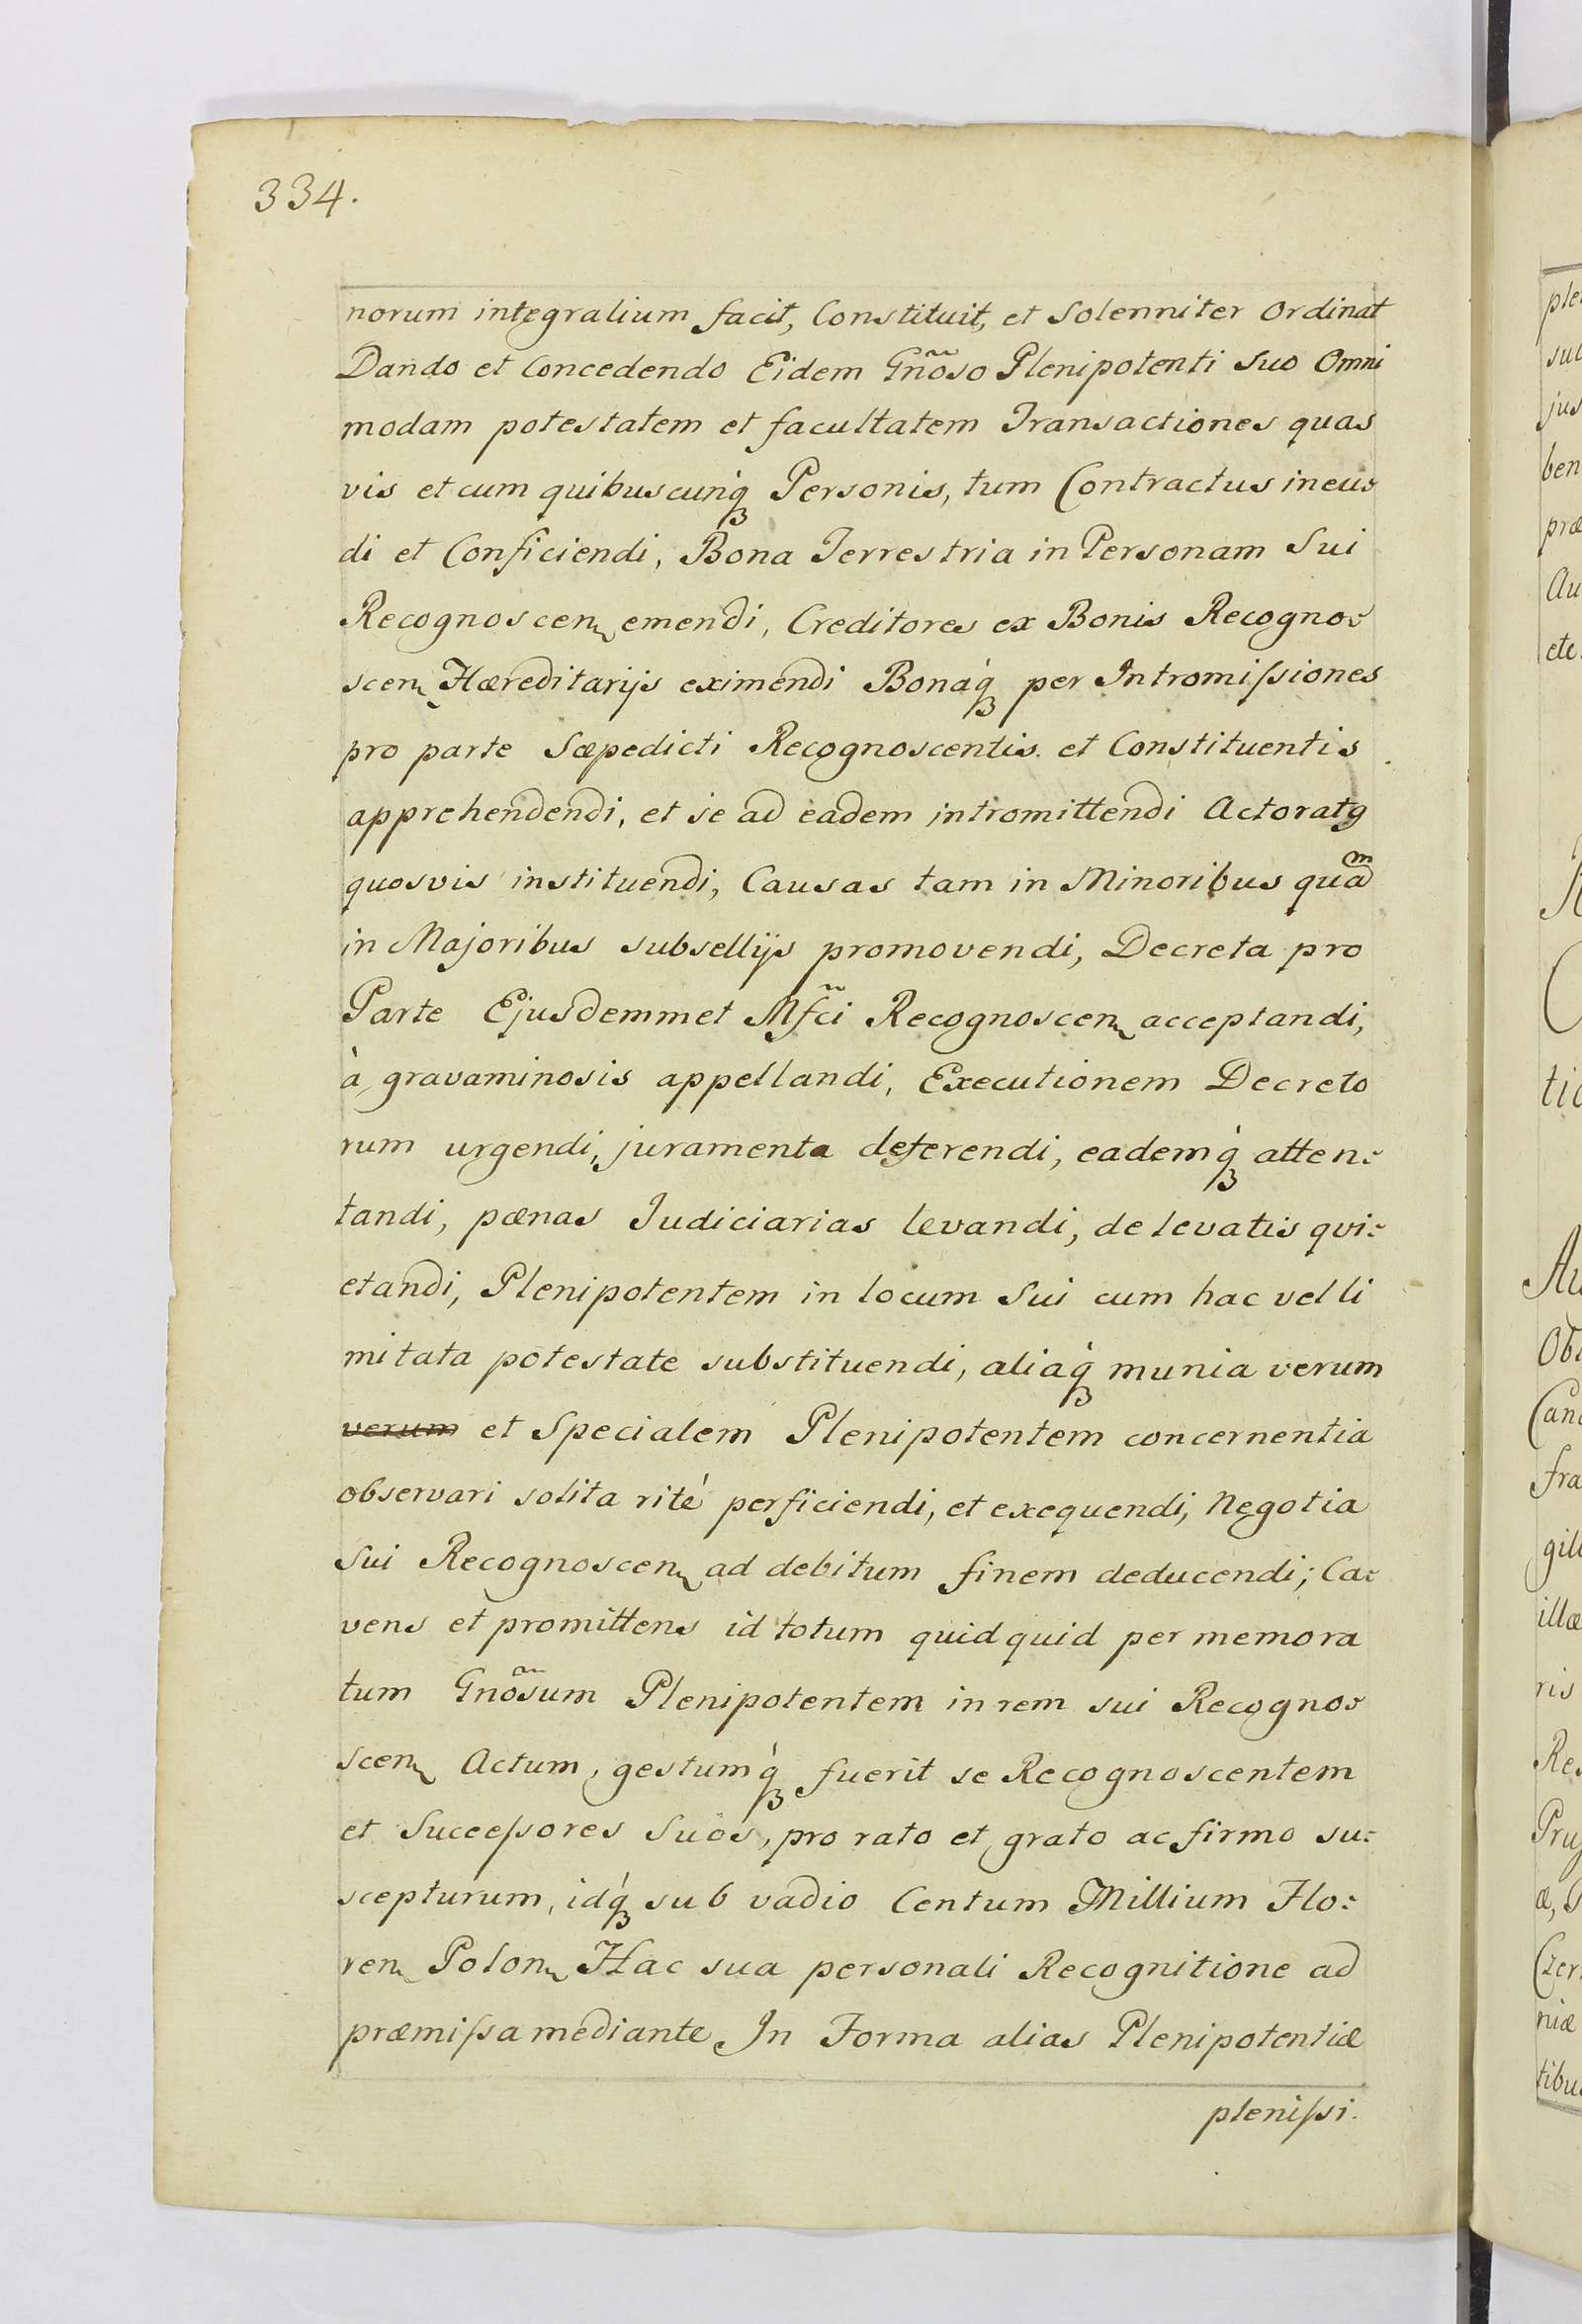 334.
norum integralium facit, Constituit, et Solenniter Ordinat
Dando et Concedendo Eidem Gnõso Plenipotenti Suo Omni
modam potestatem et facultatem Transactiones quas
vis et cum quibuscunq́ꝫ Personis, tum Contractus ineun
di et Conficiendi, Bona Terrestria in Personam Sui
Recognoscen emendi, Creditores ex Bonis Recogno:
scen Hæreditarijs eximendi Bonaq́ꝫ per Intromiſsiones
pro parte Sæpedicti Recognoscentis et Constituentis
apprehendendi, et se ad eadem intromittendi Actoratg
quosvis instituendi, Causas tam in Minoribus quam
in Majoribus subsellijs promovendi, Decreta pro
Parte Ejusdemmet Mfc̃i Recognoscen acceptandi,
à gravaminosis appellandi, Executionem Decreto
rum urgendi, juramenta deferendi, eademq́ꝫ atten:
tandi, pænas Judiciarias levandi, de levatis qvi:
etandi, Plenipotentem in locum Sui cum hac vel li
mitata potestate substituendi, aliaq́ꝫ munia verum
verum et Specialem Plenipotentem concernentia
observari solita rité perficiendi, et exequendi, Negotia
Sui Recognoscen ad debitum finem deducendi; Ca:
vens et promittens id totum quidquid per memora
tum Gnõsum Plenipotentem in rem sui Recogno:
scen Actum, gestumq́ꝫ fuerit se Recognoscentem
et Succeſsores Suos, pro rato et grato ac firmo su:
scepturum, idq́ꝫ sub vadio Centum Millium Flo:
ren Polon Hac sua personali Recognitione ad
præmiſsa mediante In Forma alias Plenipotentiæ
pleniſsi.